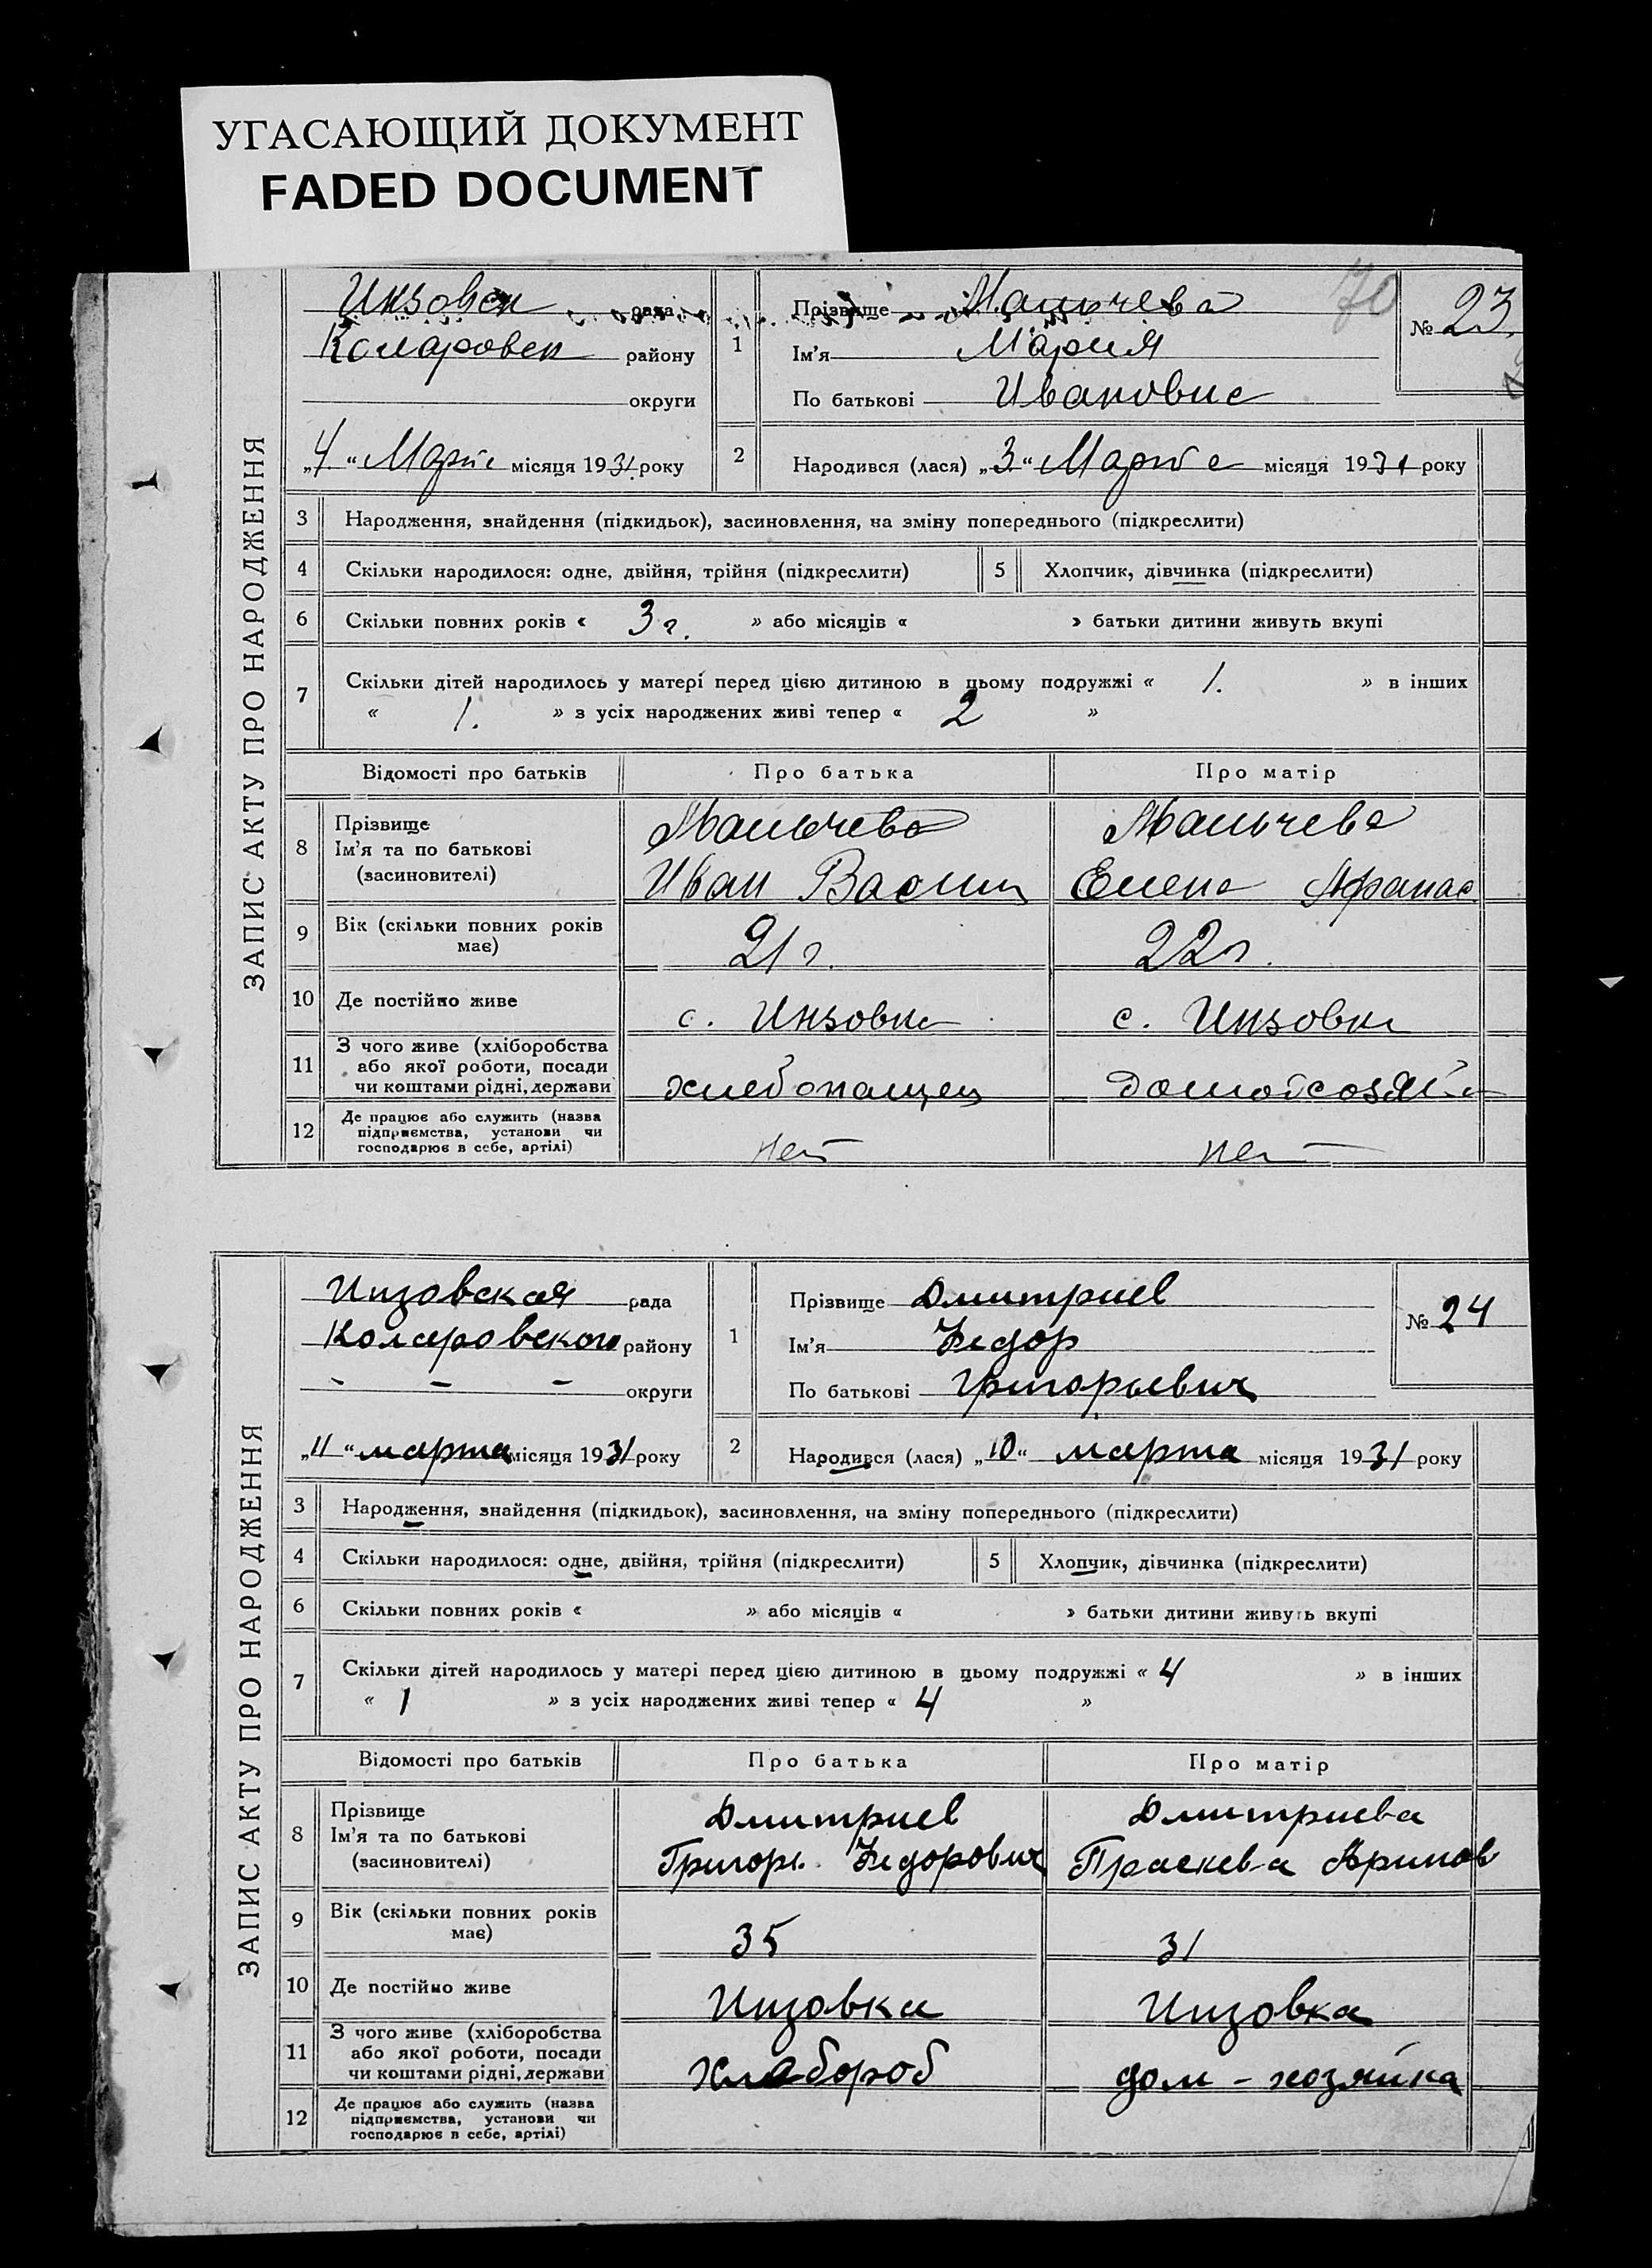 УГАСАЮЩИЙ ДОКУМЕНТ
FADED DOCUMENT
ЗАПИС АКТУ ПРО НАРОДЖЕННЯ
Инзовск рада
Коларовск району
округи
„4“ Марта місяця 1931 року
1
Прізвище Мальчева
Ім'я Мария
По батькові Ивановне
70
№ 23
2
Народився (лася) „3“ Марта місяця 1931 року
3 Народження, знайдення (підкидьок), засиновлення, на зміну попереднього (підкреслити)
4 Скільки народилося: одне, двійня, трійня (підкреслити) 5 Хлопчик, дівчинка (підкреслити)
6 Скільки повних років « 3 г. » або місяців « » батьки дитини живуть вкупі
7 Скільки дітей народилось у матері перед цією дитиною в цьому подружжі « 1. » в інших
« 1. » з усіх народжених живі тепер « 2 »
Відомості про батьків Про батька Про матір
8 Прізвище Мальчева Мальчева
Ім'я та по батькові
(засиновителі) Иван Васил Елена Афанас
9 Вік (скільки повних років має) 21 г. 22 г.
10 Де постійно живе с. Инзовке с. Инзовке
11 З чого живе (хліборобства
або якої роботи, посади
чи коштами рідні, держави хлебопашец домохозяйка
12 Де працює або служить (назва
підприємства, установи чи
господарює в себе, артілі) нет нет
ЗАПИС АКТУ ПРО НАРОДЖЕННЯ
Инзовская рада
Коларовского району
- - - округи
„11“ марта місяця 1931 року
1
Прізвище Дмитриев
Ім'я Федор
По батькові Григорьевич
№ 24
2
Народився (лася) „10“ марта місяця 1931 року
3 Народження, знайдення (підкидьок), засиновлення, на зміну попереднього (підкреслити)
4 Скільки народилося: одне, двійня, трійня (підкреслити) 5 Хлопчик, дівчинка (підкреслити)
6 Скільки повних років « » або місяців « » батьки дитини живуть вкупі
7 Скільки дітей народилось у матері перед цією дитиною в цьому подружжі « 4 » в інших
« 1 » з усіх народжених живі тепер « 4 »
Відомості про батьків Про батька Про матір
8 Прізвище Дмитриев Дмитриева
Ім'я та по батькові
(засиновителі) Григорь Федорович Праскева
9 Вік (скільки повних років має) 35 31
10 Де постійно живе Инзовка Инзовка
11 З чого живе (хліборобства
або якої роботи, посади
чи коштами рідні, держави хлебороб дом - хозяйка
12 Де працює або служить (назва
підприємства, установи чи
господарює в себе, артілі)